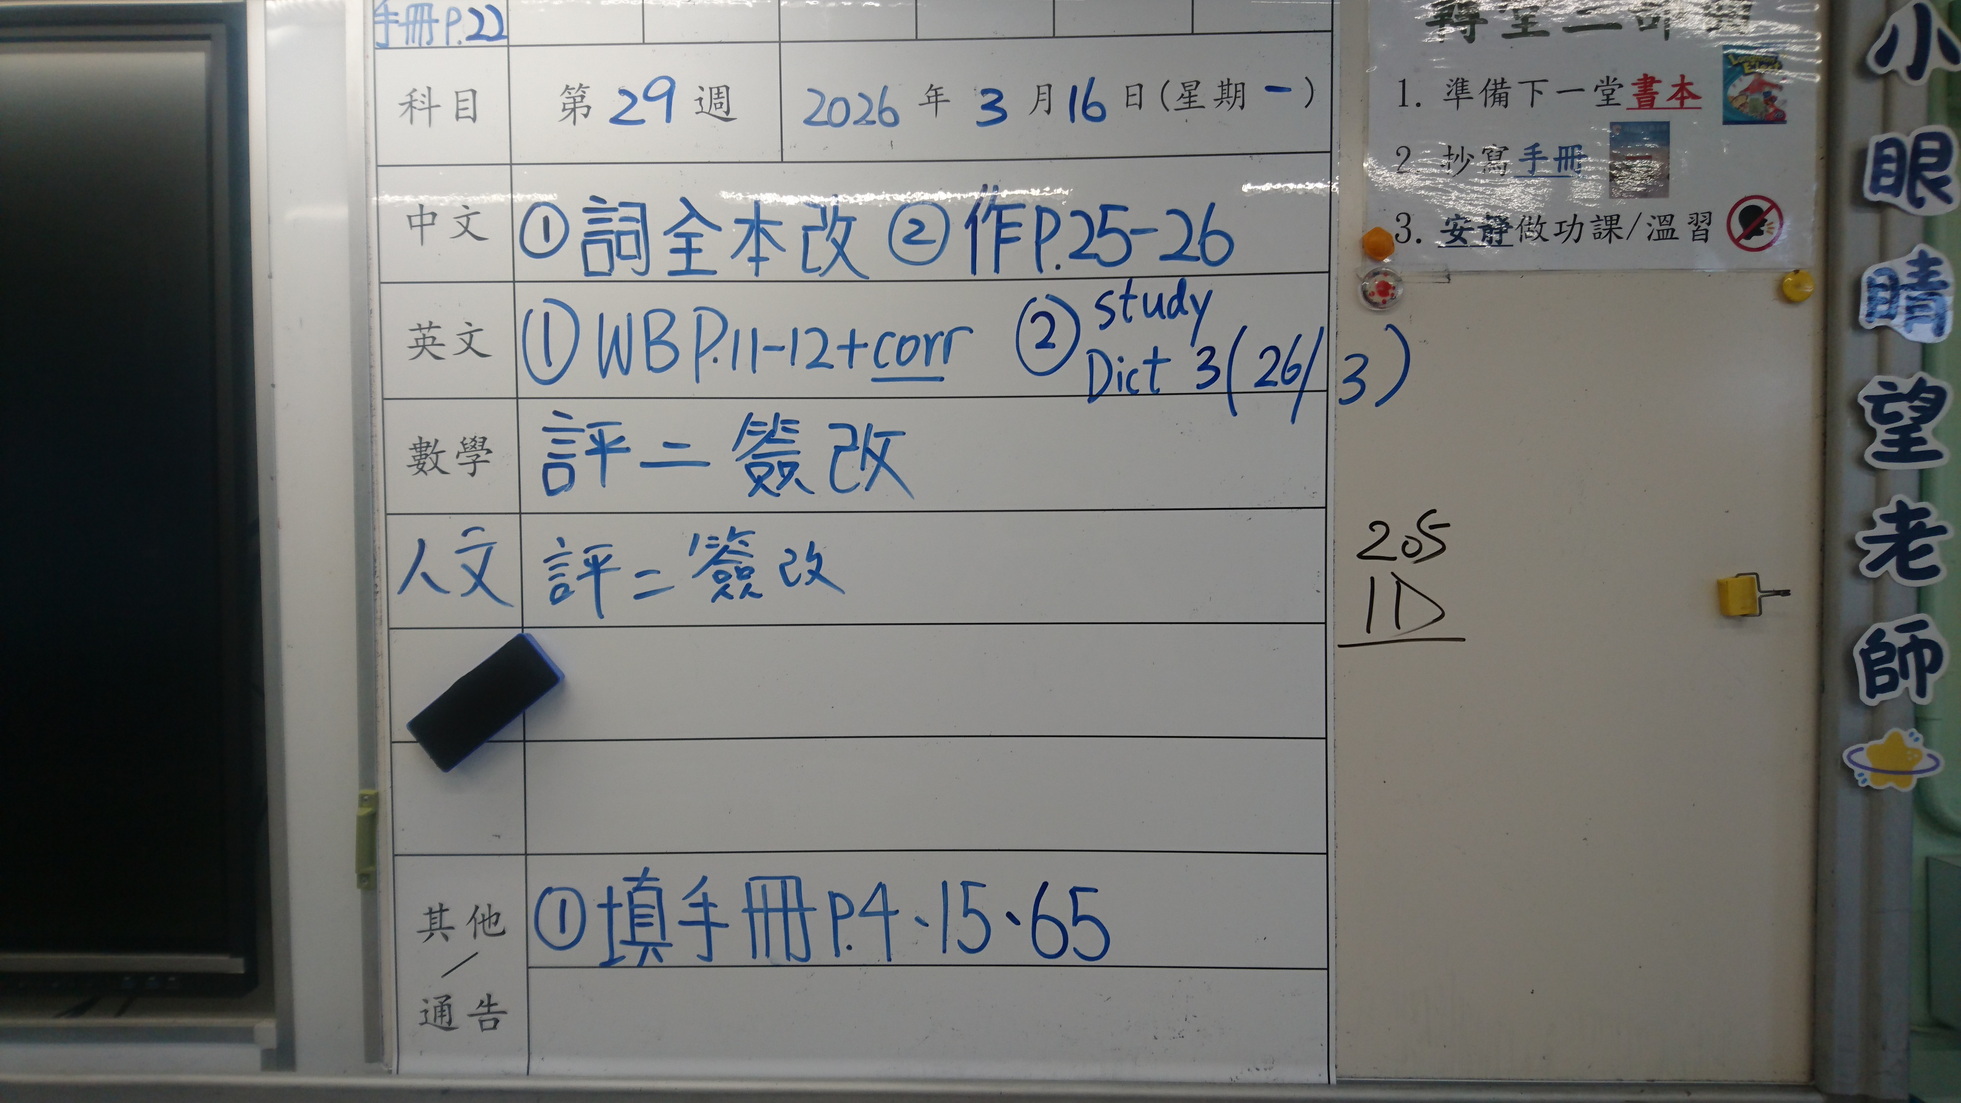 手冊P.22
科目 第29週 2026年3月16日(星期一)
中文 ①詞全本改 ②作P.25-26
英文 ①WB P.11-12+corr ②study Dict 3(26/3)
數學 評二簽改
人文 評二簽改
其他/通告 ①填手冊P.4、15、65
轉堂三部曲
1. 準備下一堂書本
2. 抄寫手冊
3. 安靜做功課/溫習
205
1D
小眼睛望老師